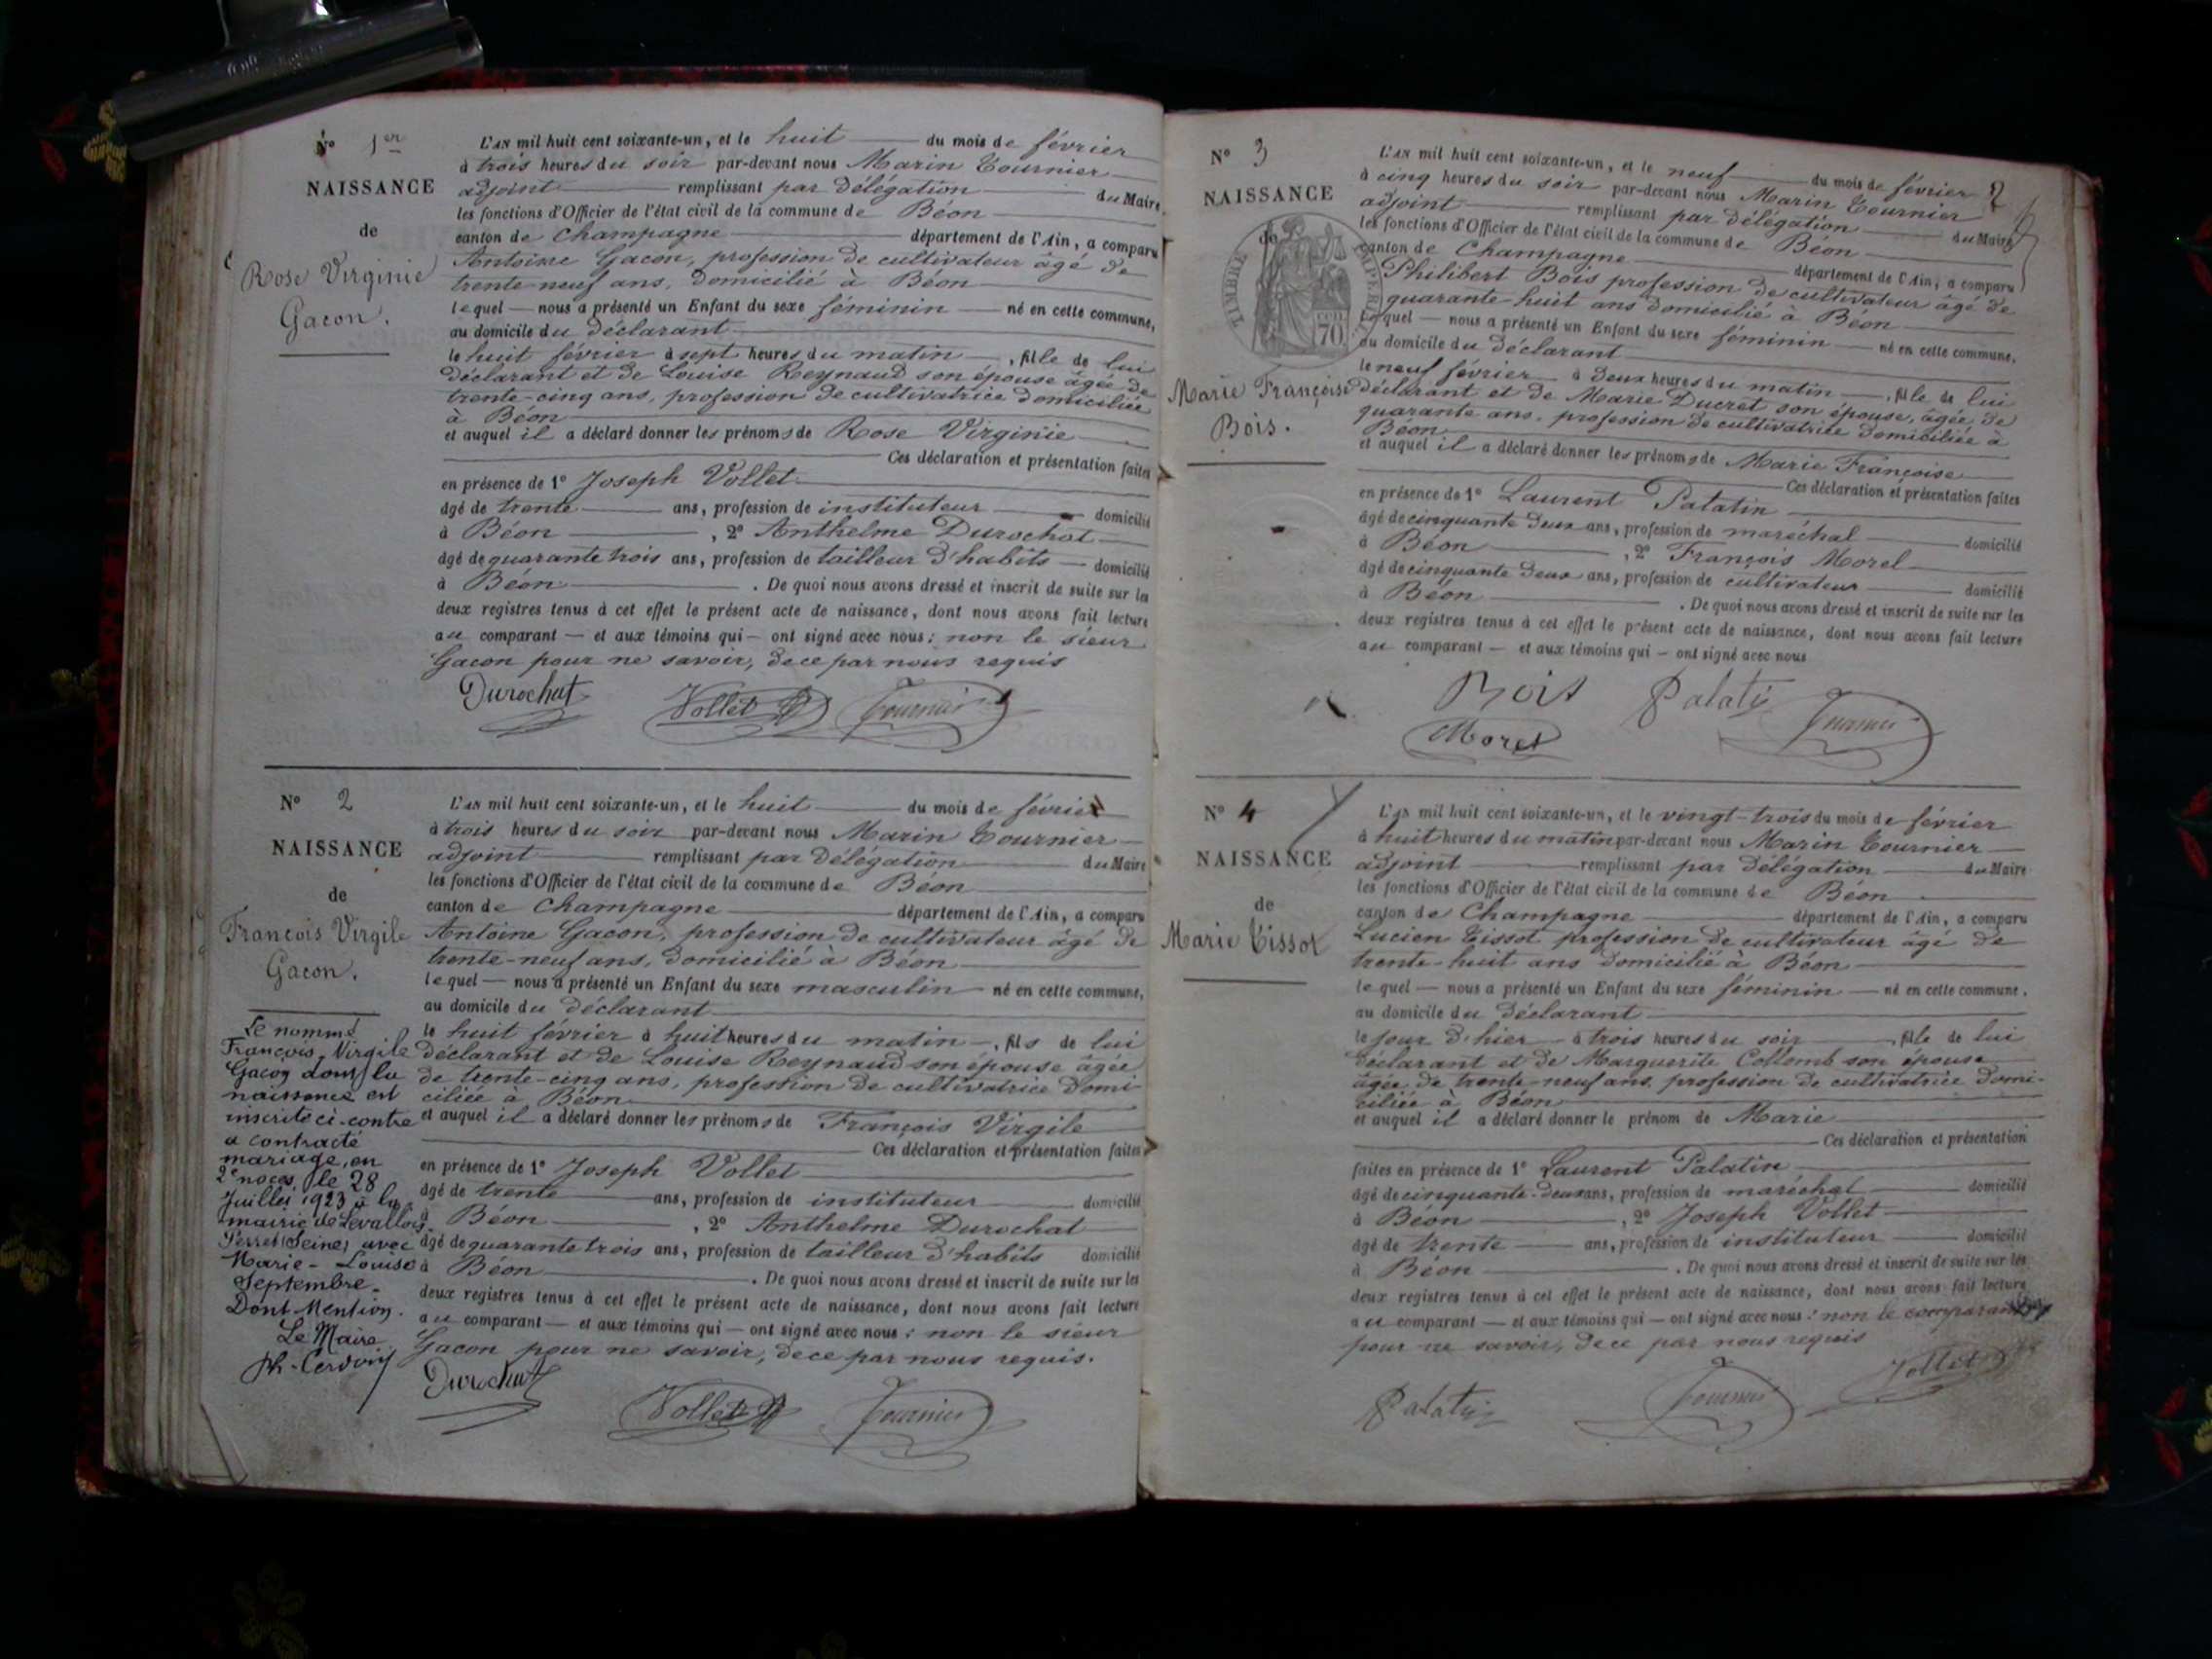 Nº 1er
NAISSANCE
de
Rose Virginie
Gacon.
L'AN mil huit cent soixante-un, et le huit du mois de février
à trois heures du soir par-devant nous Marin Tournier
adjoint remplissant par délégation du Maire
les fonctions d'Officier de l'état civil de la commune de Béon
canton de Champagne département de l'Ain, a comparu
Antoine Gacon, profession de cultivateur âgé de
trente-neuf ans, domicilié à Béon
lequel — nous a présenté un Enfant du sexe féminin — né en cette commune,
au domicile du déclarant
le huit février à sept heures du matin —, fille de lui
déclarant et de Louise Reynaud son épouse âgée de
trente-cinq ans, profession de cultivatrice domiciliée
à Béon
et auquel il a déclaré donner les prénoms de Rose Virginie
Ces déclaration et présentation faites
en présence de 1º Joseph Vollet
âgé de trente ans, profession de instituteur domicilié
à Béon, 2º Anthelme Durochat
âgé de quarante trois ans, profession de tailleur d'habits — domicilié
à Béon. De quoi nous avons dressé et inscrit de suite sur les
deux registres tenus à cet effet le présent acte de naissance, dont nous avons fait lecture
au comparant — et aux témoins qui — ont signé avec nous : non le sieur
Gacon pour ne savoir, de ce par nous requis
Durochat Vollet Tournier
Nº 2
NAISSANCE
de
François Virgile
Gacon.
Le nommé
François Virgile
Gacon dont la
naissance est
inscrite ci-contre
a contracté
mariage, en
2e noces, le 28
Juillet 1923 à la
mairie de Levallois
Perret (Seine) avec
Marie-Louise
Septembre.
Dont Mention.
Le Maire
L'AN mil huit cent soixante-un, et le huit du mois de février
à trois heures du soir par-devant nous Marin Tournier
adjoint remplissant par délégation du Maire
les fonctions d'Officier de l'état civil de la commune de Béon
canton de Champagne département de l'Ain, a comparu
Antoine Gacon, profession de cultivateur âgé de
trente-neuf ans, domicilié à Béon
lequel — nous a présenté un Enfant du sexe masculin — né en cette commune,
au domicile du déclarant
le huit février à huit heures du matin —, fils de lui
déclarant et de Louise Reynaud son épouse âgée
de trente-cinq ans, profession de cultivatrice domi-
ciliée à Béon
et auquel il a déclaré donner les prénoms de François Virgile
Ces déclaration et présentation faites
en présence de 1º Joseph Vollet
âgé de trente ans, profession de instituteur domicilié
à Béon, 2º Anthelme Durochat
âgé de quarante trois ans, profession de tailleur d'habits domicilié
à Béon. De quoi nous avons dressé et inscrit de suite sur les
deux registres tenus à cet effet le présent acte de naissance, dont nous avons fait lecture
au comparant — et aux témoins qui — ont signé avec nous : non le sieur
Gacon pour ne savoir, de ce par nous requis.
Durochat Vollet Tournier
2
Nº 3
NAISSANCE
de
TIMBRE IMPERIAL
70
Marie Françoise
Bois.
L'AN mil huit cent soixante-un, et le neuf du mois de février
à cinq heures du soir par-devant nous Marin Tournier
adjoint remplissant par délégation du Maire
les fonctions d'Officier de l'état civil de la commune de Béon
canton de Champagne département de l'Ain, a comparu
Philibert Bois profession de cultivateur âgé de
quarante-huit ans domicilié à Béon
lequel — nous a présenté un Enfant du sexe féminin — né en cette commune,
au domicile du déclarant
le neuf février à deux heures du matin —, fille de lui
déclarant et de Marie Ducret son épouse, âgée de
quarante ans, profession de cultivatrice domiciliée à
Béon
et auquel il a déclaré donner les prénoms de Marie Françoise
Ces déclaration et présentation faites
en présence de 1º Laurent Palatin
âgé de cinquante deux ans, profession de maréchal domicilié
à Béon, 2º François Morel
âgé de cinquante deux ans, profession de cultivateur domicilié
à Béon. De quoi nous avons dressé et inscrit de suite sur les
deux registres tenus à cet effet le présent acte de naissance, dont nous avons fait lecture
au comparant — et aux témoins qui — ont signé avec nous
Bois Palatin Tournier
Morel
Nº 4
NAISSANCE
de
Marie Tissot
L'AN mil huit cent soixante-un, et le vingt-trois du mois de février
à huit heures du matin par-devant nous Marin Tournier
adjoint remplissant par délégation du Maire
les fonctions d'Officier de l'état civil de la commune de Béon
canton de Champagne département de l'Ain, a comparu
Lucien Tissot profession de cultivateur âgé de
trente-huit ans domicilié à Béon
lequel — nous a présenté un Enfant du sexe féminin — né en cette commune,
au domicile du déclarant
le jour d'hier à trois heures du soir, fille de lui
déclarant et de Marguerite Collomb son épouse
âgée de trente-neuf ans, profession de cultivatrice domi-
ciliée à Béon
et auquel il a déclaré donner le prénom de Marie
Ces déclaration et présentation
faites en présence de 1º Laurent Palatin
âgé de cinquante-deux ans, profession de maréchal domicilié
à Béon, 2º Joseph Vollet
âgé de trente ans, profession de instituteur domicilié
à Béon. De quoi nous avons dressé et inscrit de suite sur les
deux registres tenus à cet effet le présent acte de naissance, dont nous avons fait lecture
au comparant — et aux témoins qui — ont signé avec nous : non le comparant
pour ne savoir, de ce par nous requis
Palatin Tournier Vollet